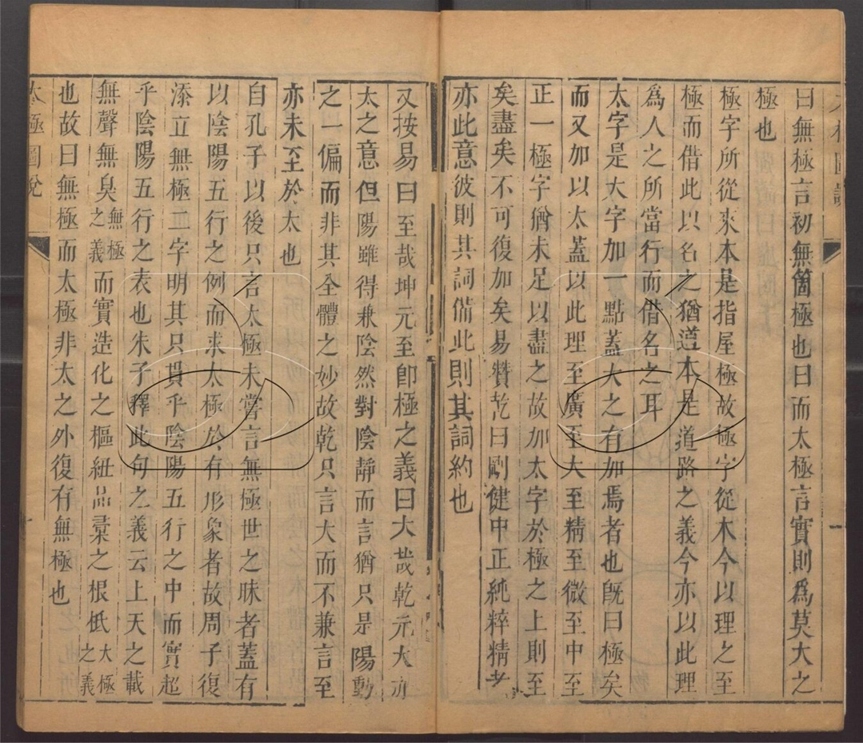 曰無極言初無箇極也曰而太極言實則為莫大之
極也
極字所從來本是指屋極故極字從木今以理之至
極而借此以名之猶道本是道路之義今亦以此理
為人之所當行而借名之耳
太字是大字加一點蓋大之有加焉者也既曰極矣
而又加以太蓋以此理至廣至大至精至微至中至
正一極字猶未足以盡之故加太字於極之上則至
矣盡矣不可復加矣易贊乾曰剛健中正純粹精者
亦此意彼則其詞俻此則其詞約也
又按易曰至哉坤元至卽極之義曰大哉乾元大亦
太之意但陽雖得兼陰然對陰靜而言猶只是陽動
之一偏而非其全體之妙故乾只言大而不兼言至
亦未至於太也
自孔子以後只言太極未嘗言無極世之昧者蓋有
以陰陽五行之例而求太極於有形象者故周子復
添立無極二字明其只貫乎陰陽五行之中而實超
乎陰陽五行之表也朱子釋此句之義云上天之載
無聲無臭無極之義而實造化之樞紐品彙之根柢太極之義
也故曰無極而太極非太之外復有無極也
太極圖說